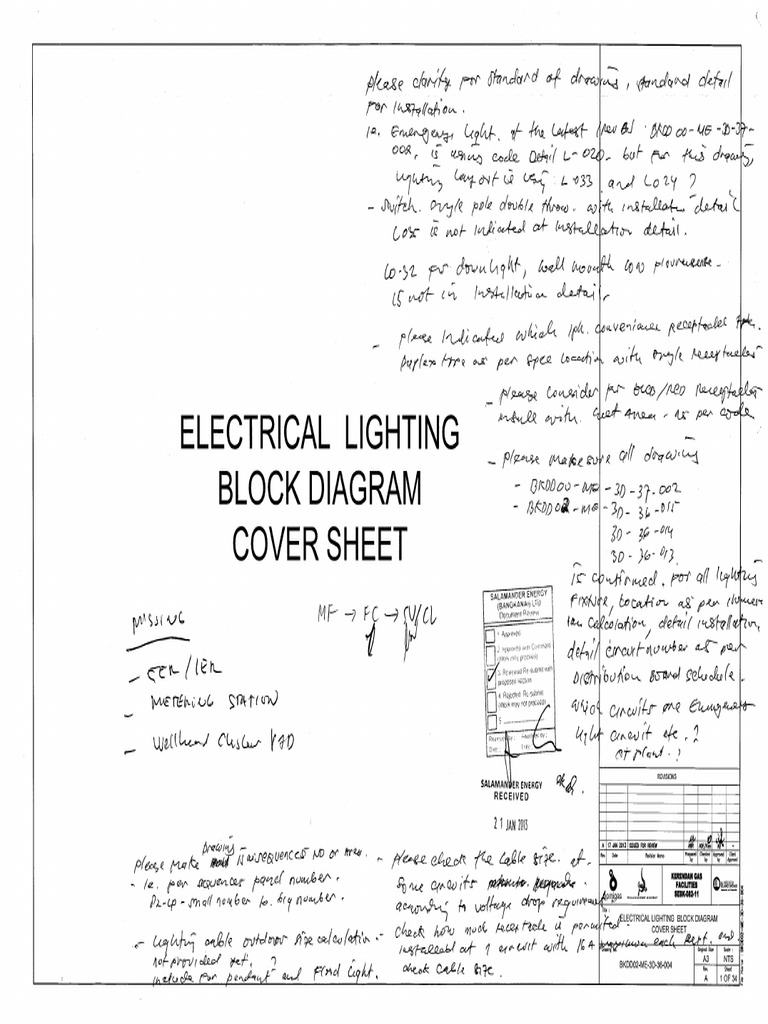 please clarify for standard of drawing, standard detail
for installation.
ie. Emergency light. of the latest rev BKDD00-ME-3D-37-
002, is using code detail L-020. but for this drawing,
lighting layout is using L-033 and L024 ?
- switch. single pole double throw. with installation detail
is not indicated at installation detail.
LO-32 for downlight, wall mounth
is not in installation detail.
- please indicated which 1ph. convenience receptacles
Duplex type as per spec location with single receptacles
- please consider for receptacles
with. as per code
- please make sure all drawing
- BKDD00-ME-3D-37-002
- BKDD02-ME-3D-36-015
3D-36-014
3D-36-013
is confirmed. for all lighting
fixture, location as per
calculation, detail installation,
detail circuit number as per
distribution board schedule.
which circuits are Emergency
light circuit etc. ?
at plant. ?
ELECTRICAL LIGHTING
BLOCK DIAGRAM
COVER SHEET
MISSING
- /
- METERING STATION
- Wellhead
MF → FC →
SALAMANDER ENERGY
(BANGKANAI) LTD
Document Review
1. Approved
2. Approved with Comment
3. Reviewed Re-submit with
4. Rejected. Re-submit
5.
SALAMANDER ENERGY
RECEIVED
21 JAN 2013
Drawing
please make is insequences no or area.
- ie. per sequences panel number.
DL-LP - small number to big number.
- Lighting cable outdoor size calculation
not provided yet. ?
include for pendant and flood light.
- please check the cable size. at
some circuits
according to voltage drop requirement
- check how much receptacle is permitted
installed at 1 circuit with 16A each dept. and
check cable size.
REVISIONS
A 17 JAN 2013 ISSUED FOR REVIEW
Rev. Date Revision Name Prepared by Checked by Approved by Client Approval
KERENDAN GAS
FACILITIES
SEBK-082-11
Title :
ELECTRICAL LIGHTING BLOCK DIAGRAM
COVER SHEET
Original Size Scale :
A3 NTS
BKDD02-ME-3D-36-004
Rev. Sheet
A 1 OF 34